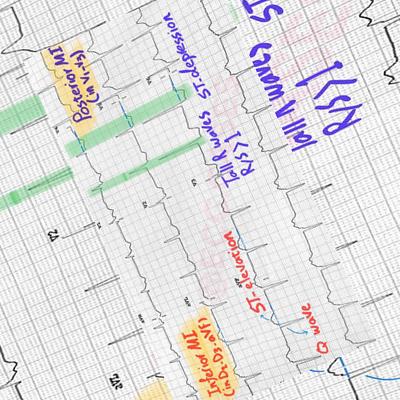 Posterior MI
(in V1-V3)
Tall R waves ST-depression
R/S>1
Tall R waves ST
R/S>1
ST-elevation
Q wave
Inferior MI
(in D2-D3-aVF)
V2
aVL